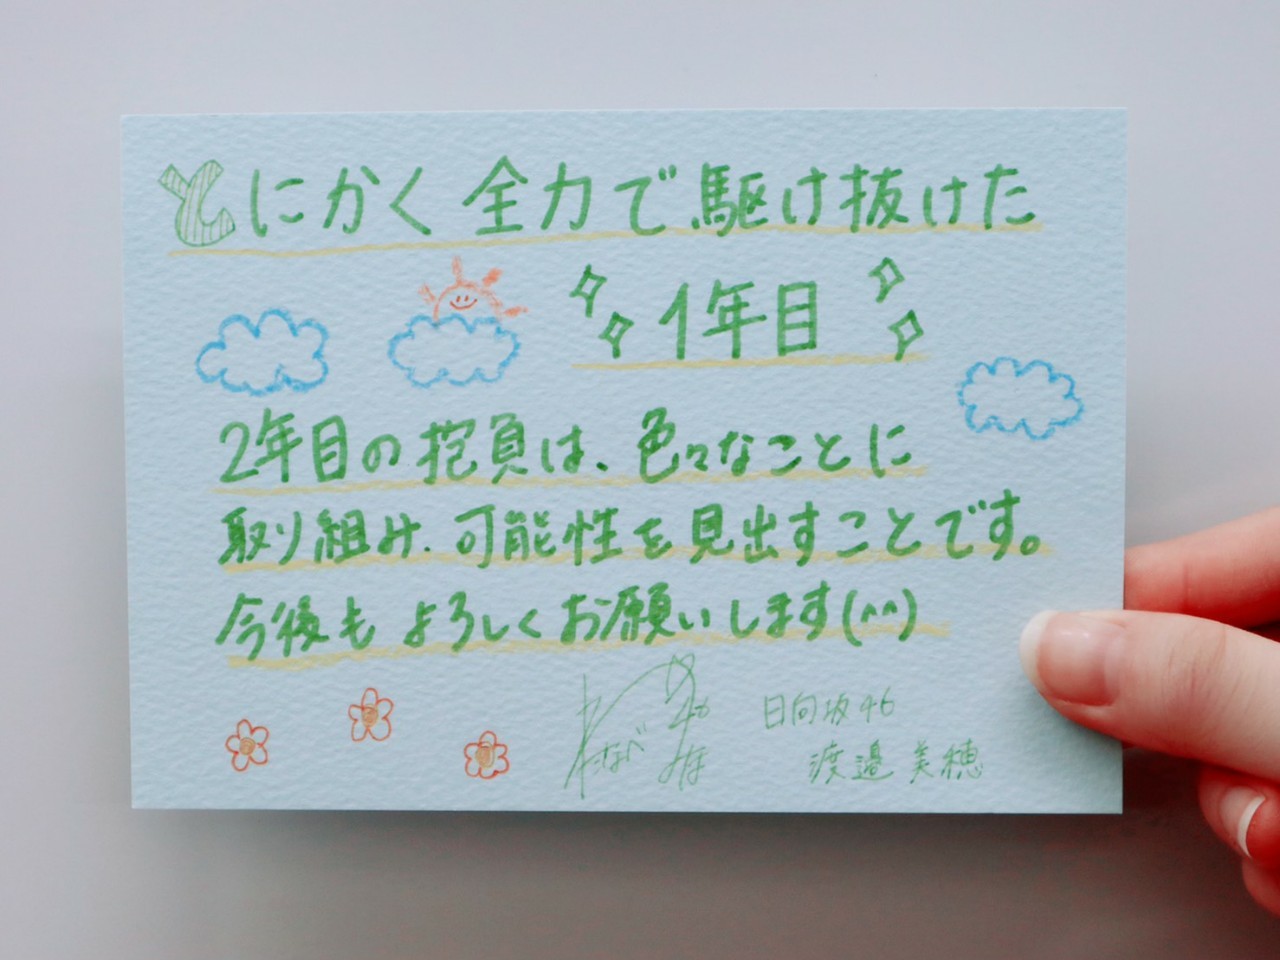 とにかく全力で駆け抜けた
1年目
2年目の抱負は、色々なことに
取り組み、可能性を見出すことです。
今後もよろしくお願いします(^^)
日向坂46
渡邉美穂